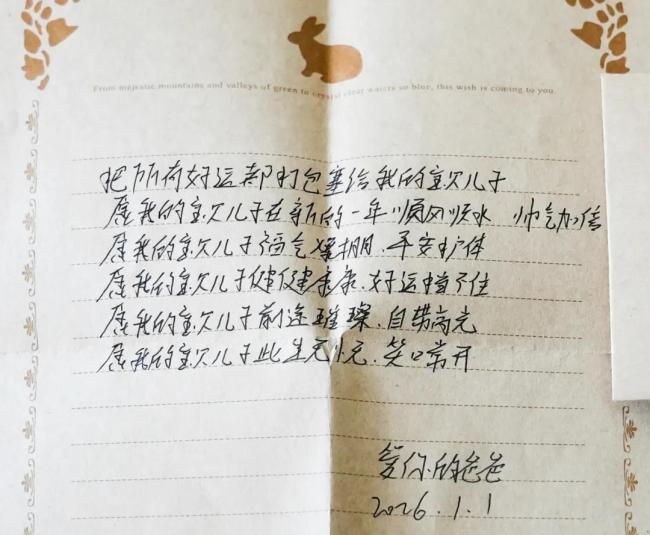 From majestic mountains and valleys of green to crystal clear waters so blur, this wish is coming to you.
把所有好运都打包塞给我的宝贝儿子
愿我的宝贝儿子在新的一年顺风顺水 帅气加倍
愿我的宝贝儿子福气爆棚、平安护体
愿我的宝贝儿子健健康康、好运挡不住
愿我的宝贝儿子前途璀璨、自带高光
愿我的宝贝儿子此生无忧、笑口常开
爱你的爸爸
2026.1.1